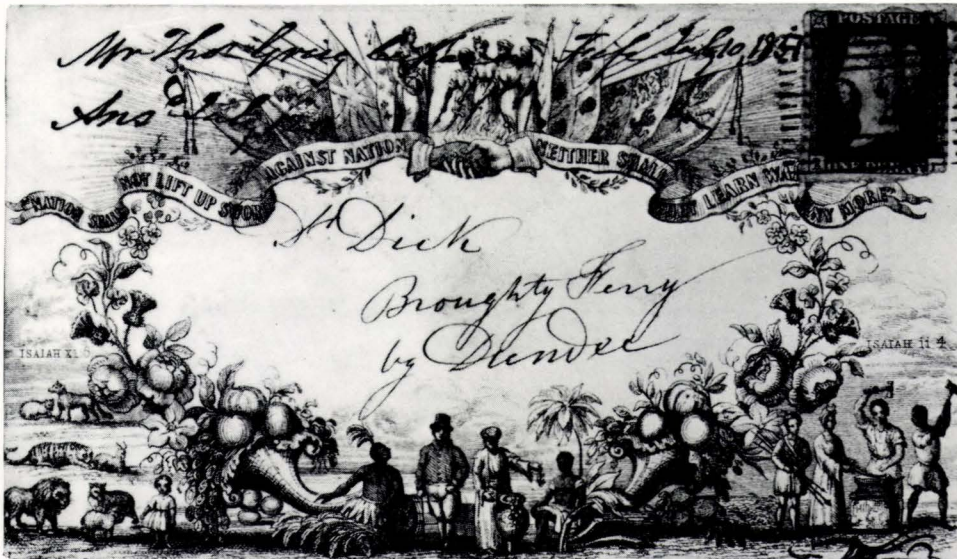 Mr Thos
Ansd
POSTAGE
"NATION SHALL NOT LIFT UP SWORD AGAINST NATION NEITHER SHALL THEY LEARN WAR ANY MORE"
Dr Dick
Broughty Ferry
by Dundee
ISAIAH XI
ISAIAH 11 4